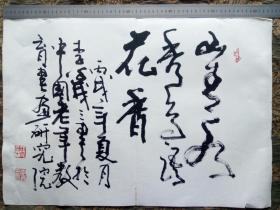 山青水
秀鸟语
花香
丙戌年夏月
李 书於
中国老年教
育书画研究院